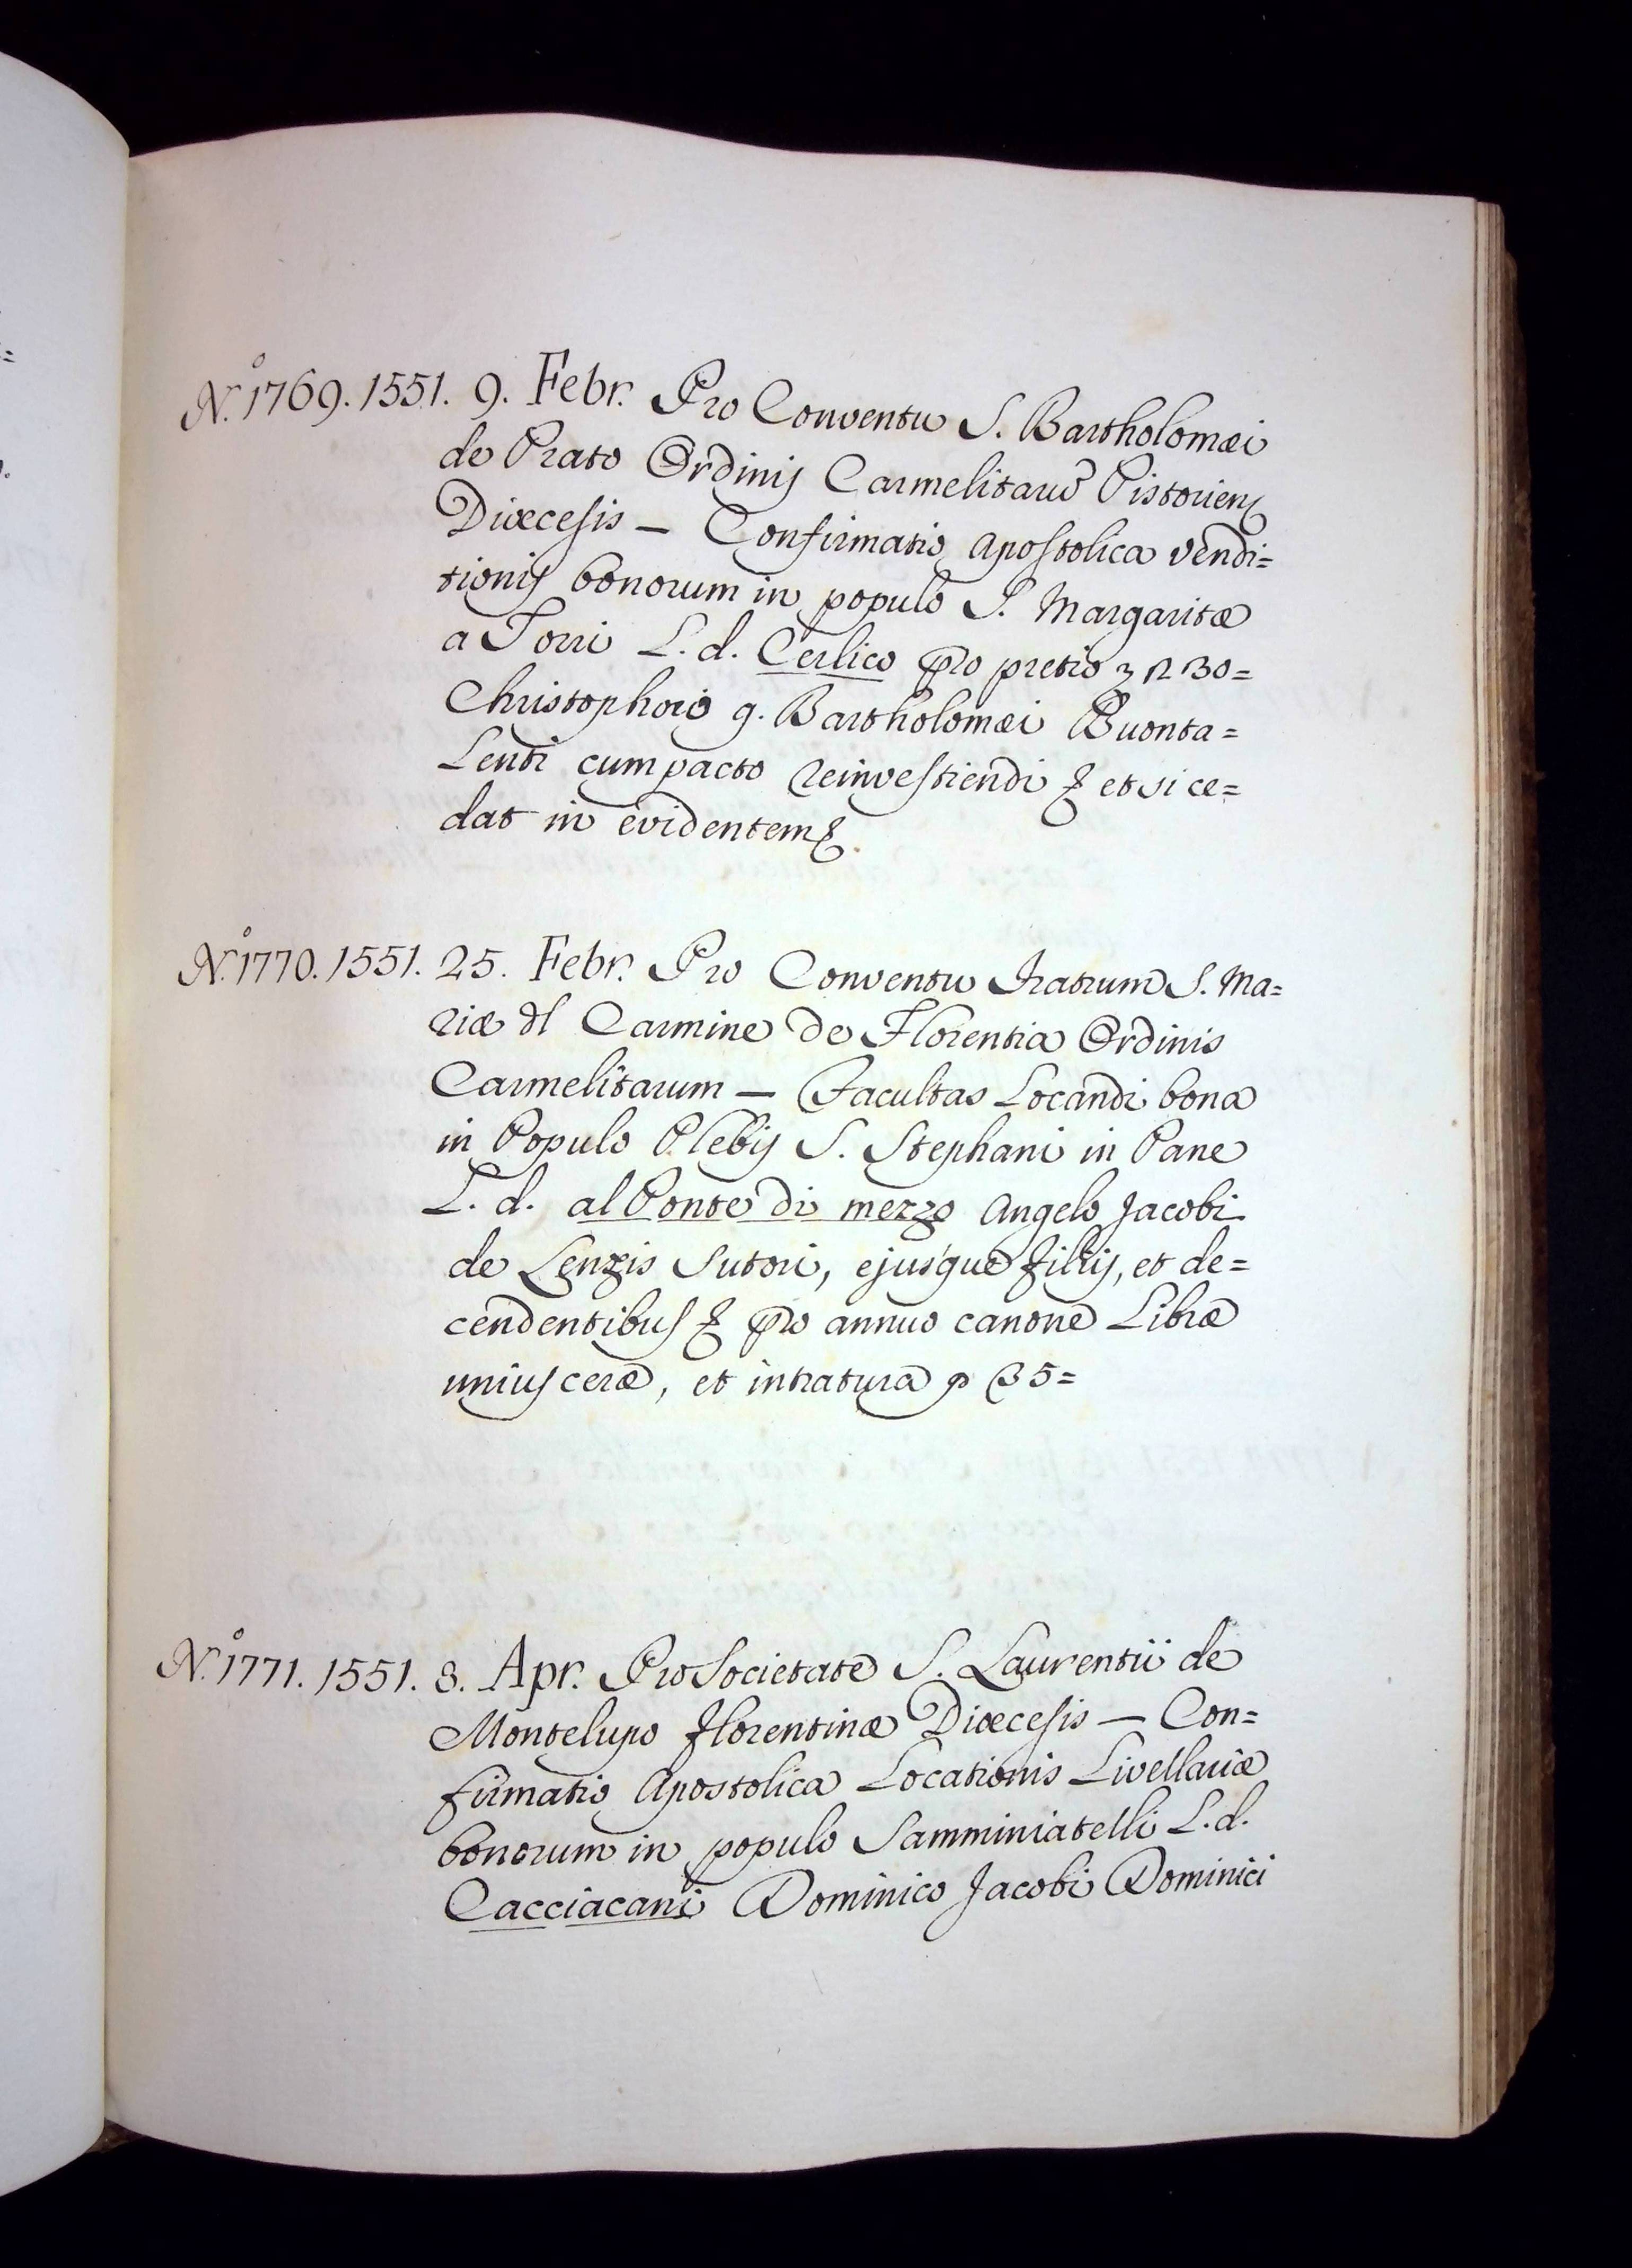 N.° 1769. 1551. 9. Febr. Pro Conventu S. Bartholomæi
de Prato Ordinis Carmelitarũ Pistorien
Diœcesis — Confirmatio Apostolica vendi=
tionis bonorum in populo S. Margaritæ
a Torri L. d. Cerlico pro pretio
Christophoro q. Bartholomæi Buonta=
Lenti cum pacto reinvestiendi & et si ce=
dat in evidentem &.
N.° 1770. 1551. 25. Febr. Pro Conventu Fratrum S. Ma=
riæ dl Carmine de Florentia Ordinis
Carmelitarum — Facultas Locandi bona
in Populo Plebis S. Stephani in Pane
L. d. al Ponte di mezzo Angelo Jacobi
de Lenzis Sutori, ejusque filiis, et de=
cendentibus & pro annuo canone Libræ
unius ceræ, et intratura 35=
N.° 1771. 1551. 8. Apr. Pro Societate S. Laurentii de
Montelupo Florentinæ Diœcesis — Con=
firmatio Apostolica Locationis Livellariæ
bonorum in populo Samminiatelli L. d.
Cacciacani Dominico Jacobi Dominici